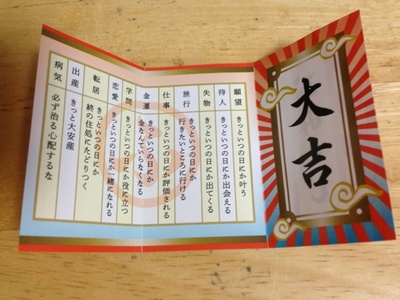 大吉
願望 きっといつの日にか叶う
待人 きっといつの日にか出会える
失物 きっといつの日にか出てくる
旅行 きっといつの日にか
行きたいところに行ける
仕事 きっといつの日にか評価される
金運 きっといつの日にか
金なんていらなくなる
学問 きっといつの日にか役に立つ
恋愛 きっといつの日にか一緒になれる
転居 きっといつの日にか
終の住処にたどりつく
出産 きっと大安産
病気 必ず治る心配するな